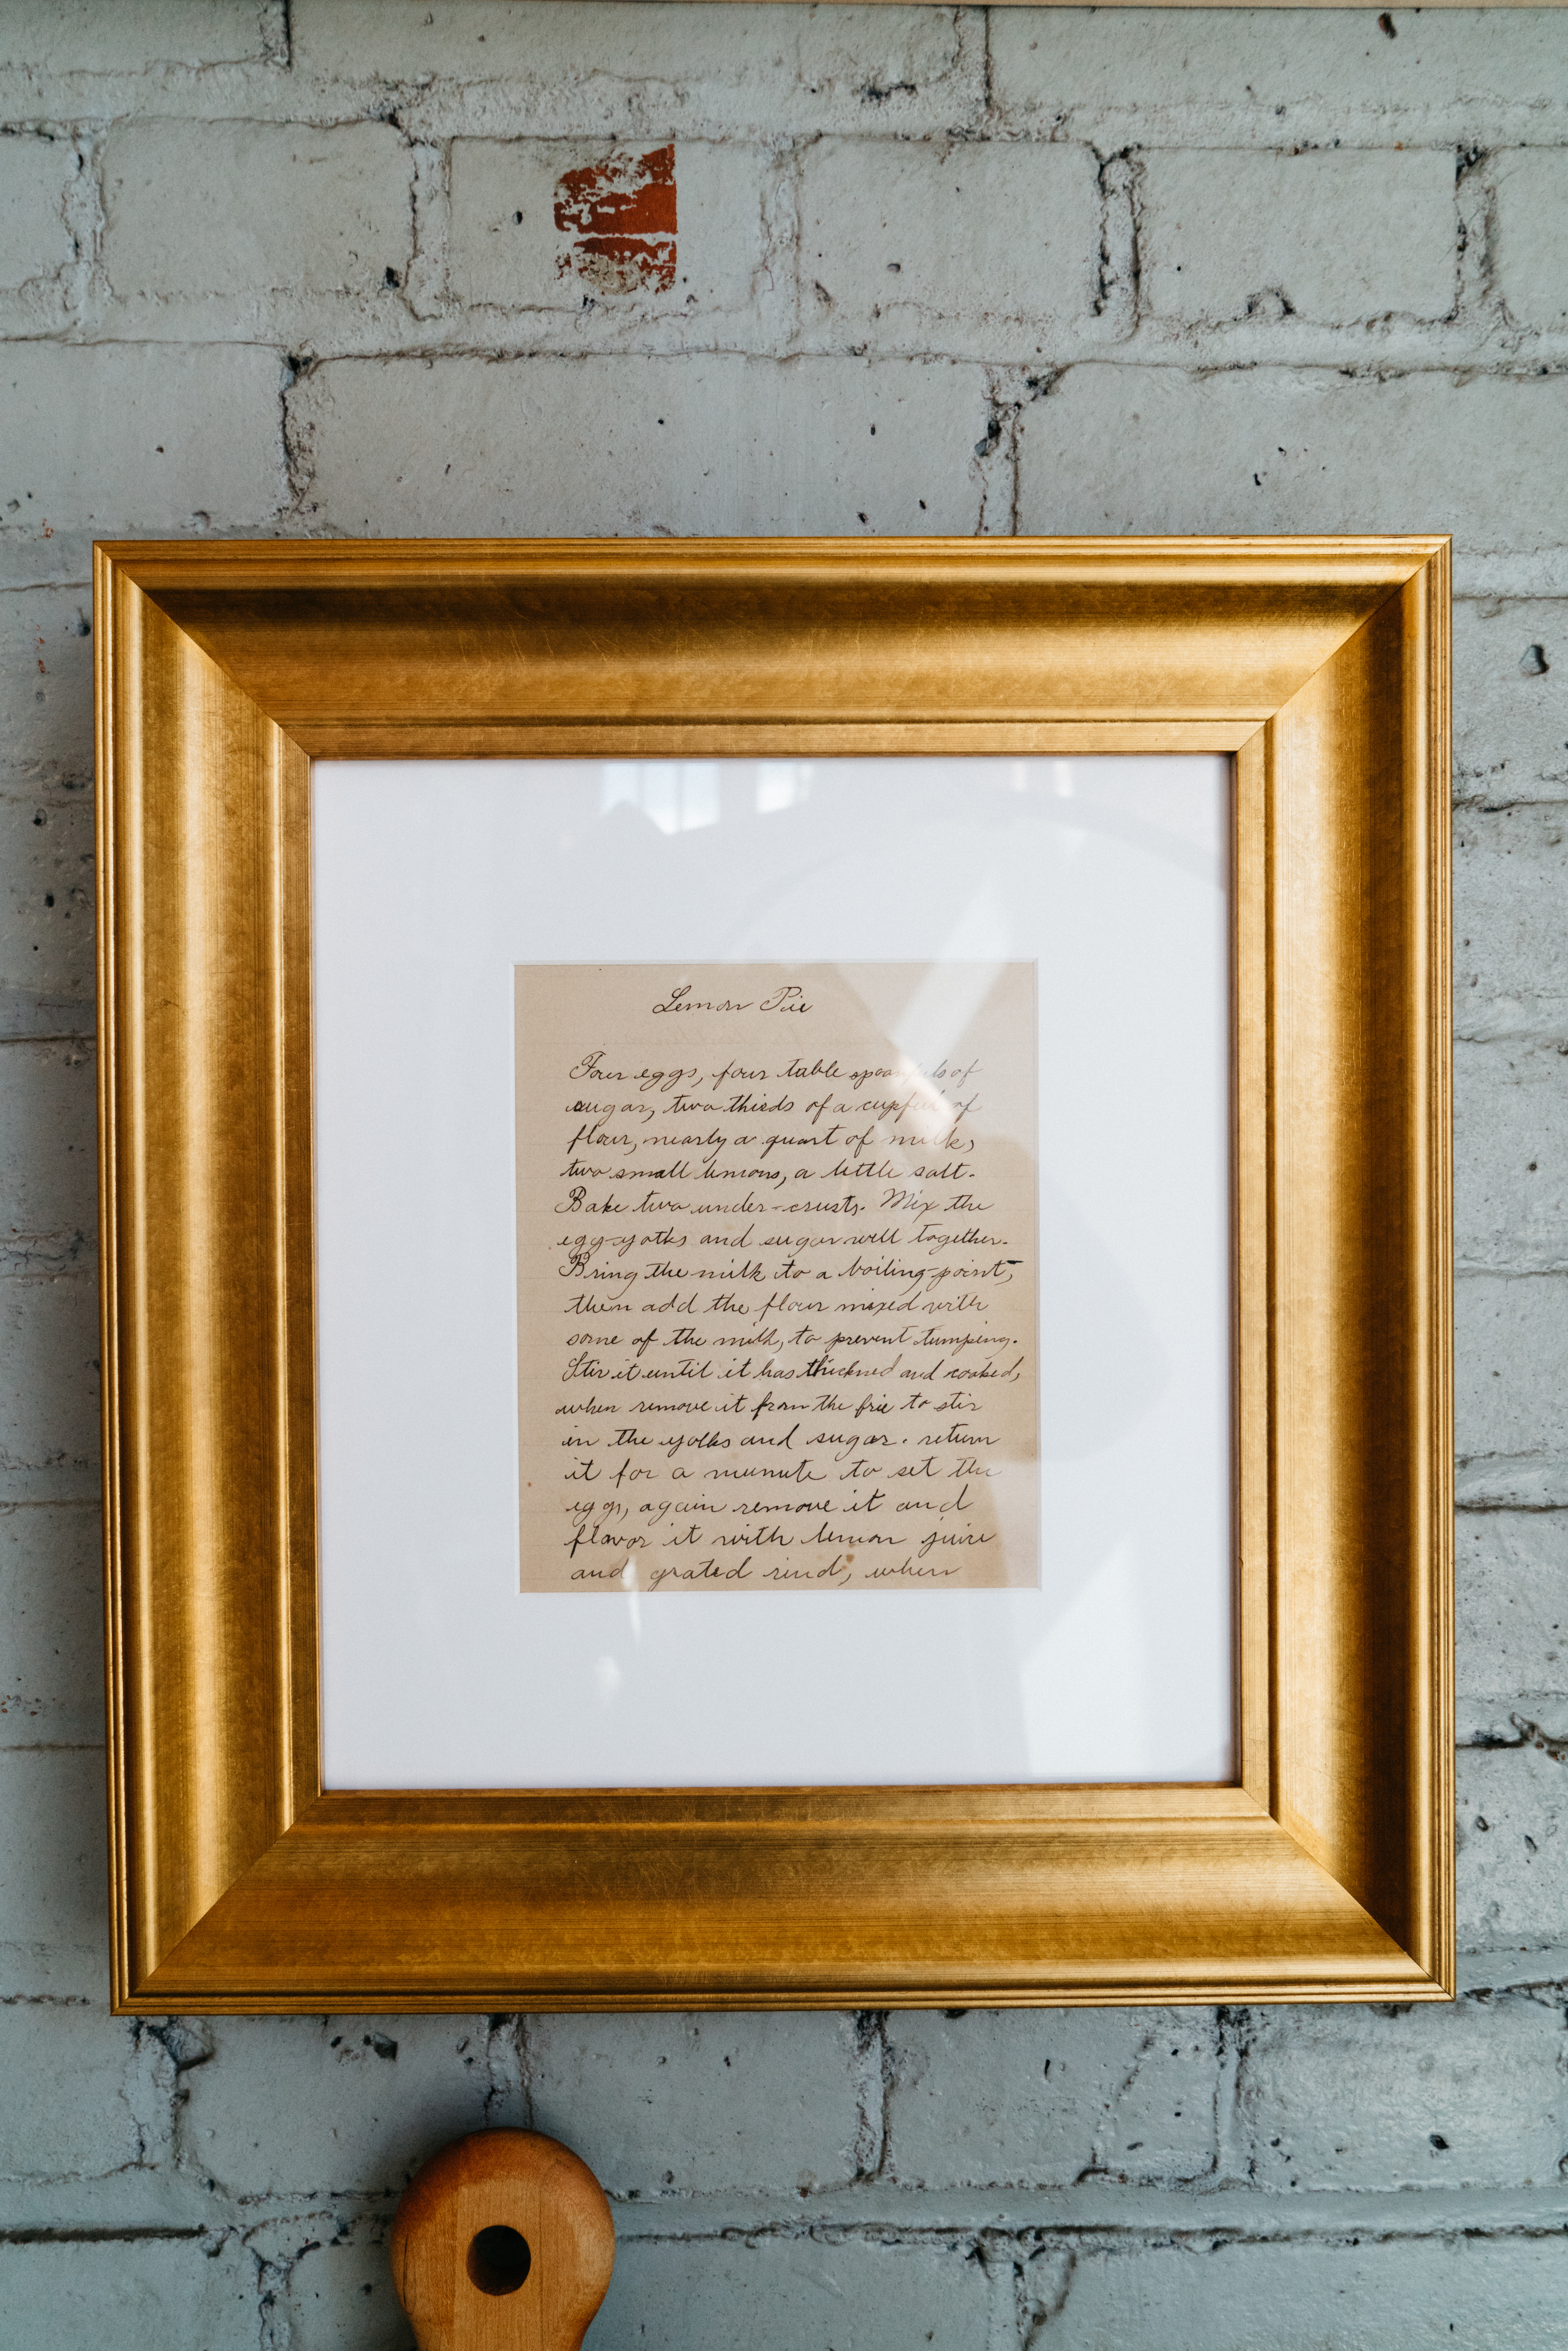 Lemon Pie
Four eggs, four table spoonfuls of
sugar, two thirds of a cupful of
flour, nearly a quart of milk,
two small lemons, a little salt.
Bake two under-crusts. Mix the
egg-yolks and sugar well together.
Bring the milk to a boiling-point,
then add the flour mixed with
some of the milk, to prevent lumping.
Stir it until it has thickned and cooked,
when remove it from the frie to stir
in the yolks and sugar. return
it for a munute to set the
eggs, again remove it and
flavor it with lemon juice
and grated rind, when